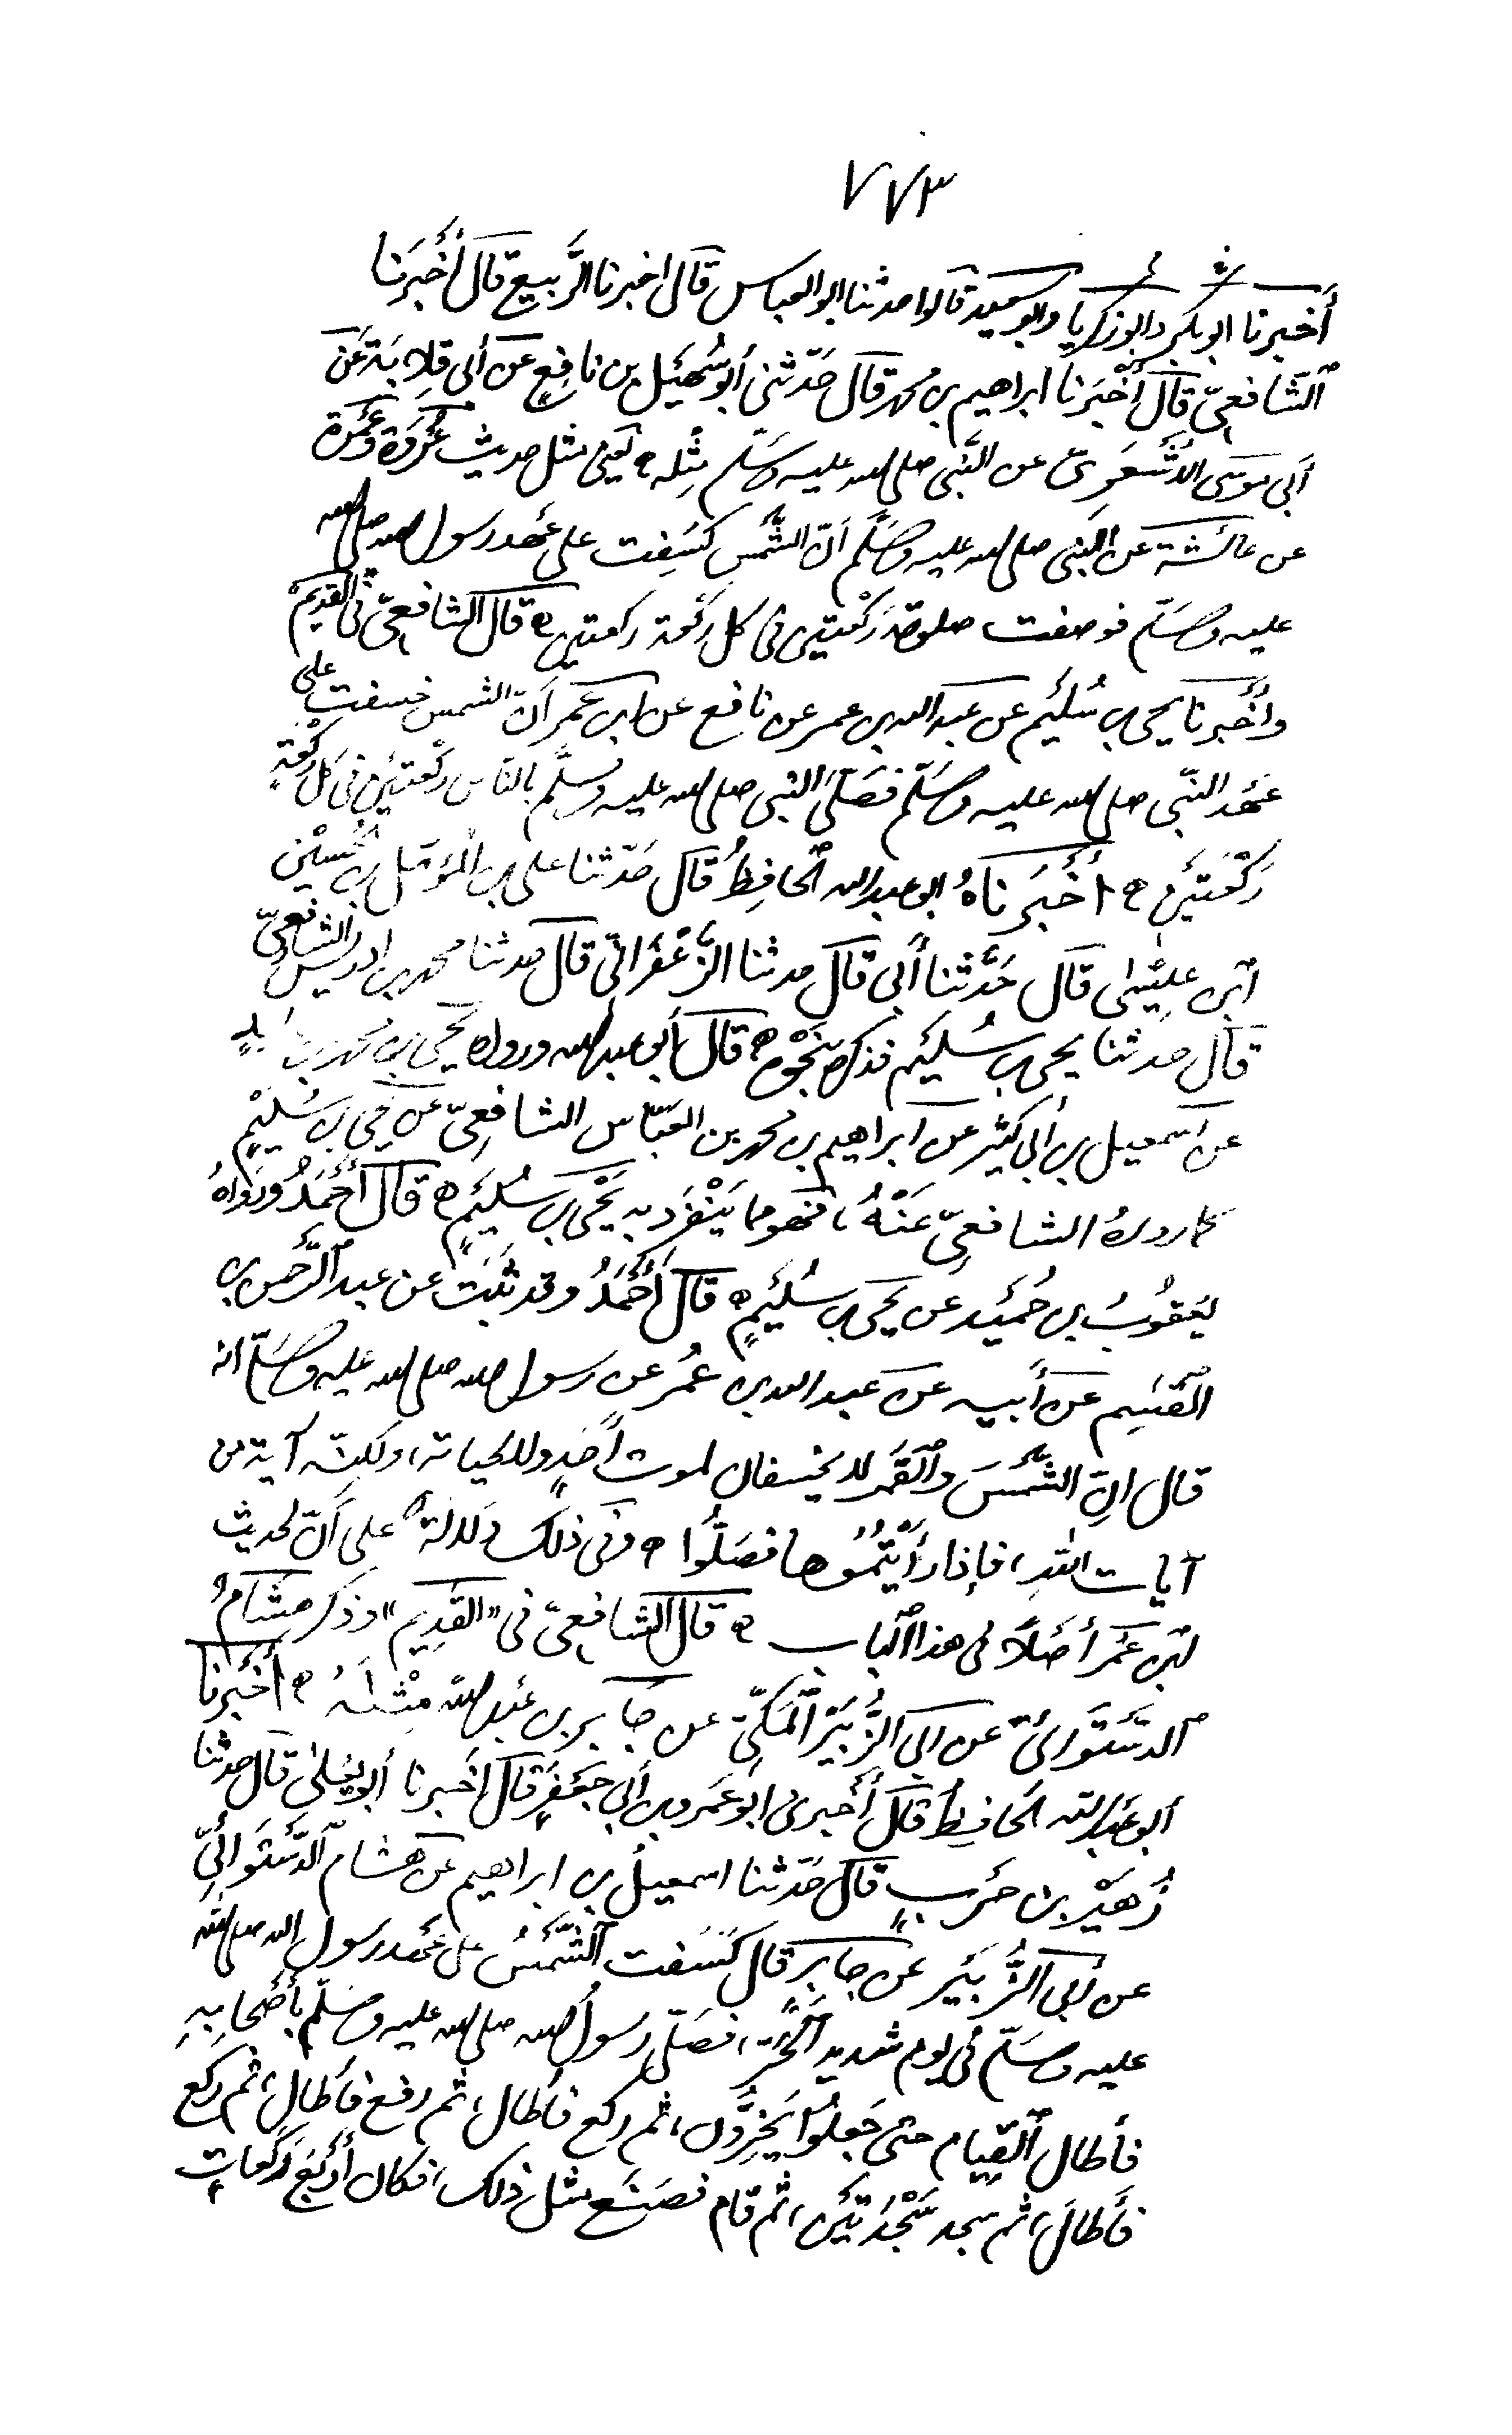 ٧٧٣
أخبرنا ابو بكر وابو زكريا وابو سعيد قالوا حدثنا ابو العباس قال اخبرنا الرَّبيع قال أَخْبَرَنا
الشّافعيّ قال أَخْبَرَنا ابراهيم بن محمد قال حَدّثنى أبو سُهَيْل بن نافعٍ عن أبى قِلابَة عَن
أبى موسَى الأشْعَرِىّ عن النَّبى صلى الله عليه وسَلّم مِثْله ه يَعنى مثل حديث عُرْوَة وعَمْرة
عن عائشة عن النبى صلى الله عليه وسَلَّم أنّ الشَّمْس كسَفِت على عَهْد رسول الله صلى الله
عليه وسَلّم فوصفت صلوته رَكْعتين فى كل رَكْعة ركعتين ه قال الشافعىّ فى القديم
وأَخْبرنا يحيى بن سُلَيْم عن عبد الله بن عمر عن نافع عن ابن عُمَر أنّ الشمس خسفت على
عَهْد النّبى صلى الله عليه وسَلّم فصَلّى النبى صلى الله عليه وسلَّم بالنّاس ركْعتيْن فى كل ركْعةٍ
رَكْعَتَيْن ه أخْبَرَناهُ ابو عبد الله الحافِظُ قال حَدّثنا على بن المؤمّل بن الحُسَيْن
ابْن عِيْسٰى قال حَدَّثنا أَبى قال حدثنا الزَّعْفَرَانّى قال حدثنا محمد بن ادريس الشافعىّ
قال حدثنا يحيى بن سُلَيْم فذكره بنَحْوه ه قال أبو عبد الله ورواه يَحْيى بن محمد بن
عن اسمعيل بن أبى كثير عن ابراهيم بن محمد بن العَبّاس الشافِعىّ عن يحيى بن سُلَيْمٍ
كما رواهُ الشافعىّ عَنْهُ، فهو مما يَنْفَرد به يَحْيى بن سُلَيْمٍ ه قال أَحْمَدُ ورَوَاهُ
يَعقُوبُ بن حُمَيْد عن يحيى بن سُلَيْمٍ ه قال أَحْمَدُ وقد ثَبَت عن عبد الرَّحمن بن
القٰسِم عن أَبيه عن عبد الله بن عُمر عن رسول الله صلى الله عليه وسَلّم انه
قال انّ الشَّمْسَ والقَمَر لا يخسفان لموت أحَدٍ ولا لحياته، ولكنّه آية من
آيات اللهِ، فإذا رأَيْتُمُوها فصَلُّوا ه وفى ذلك دلالة على أنّ لحديث
ابْن عُمَر أصْلًا فى هذا الباب ه قال الشافعىّ فى «القَدِيم» وذكر هِشَامٌ
الدسْتَوائىّ عن ابى الزُّبَيْر المَكىّ عن جابر بن عَبْد الله مِثْلَهُ ه أخْبَرنا
أبو عَبْد الله الحافظُ قال أَخْبرنى ابو عَمْرو بن أبى جَعْفَرٍ قال أخبرنا أبو يَعْلىٰ قال حدثنا
زُهَيْر بن حَرْبٍ قال حَدّثنا اسمعيلُ بن ابراهيم عن هشام الدَّسْتَوائىّ
عن أبى الزُّبَيْر عن جابِر قال كَسَفت الشَّمْسُ على عَهْد رسول الله صلى الله
عليه وسَلّم فى يوم شديد الحَرّ، فصَلّى رسولُ الله صلى الله عليه وسَلّم بأَصْحابهِ
فأطال القِيام حتى جَعلُوا يَخِرُّون، ثم ركع فأطال، ثم رفع فأطال، ثم ركع
فأطالَ، ثم سجد سَجْدَتَيْن، ثم قام فصَنَع مثل ذلك، فكان أَرْبَعَ رَكَعَاتٍ